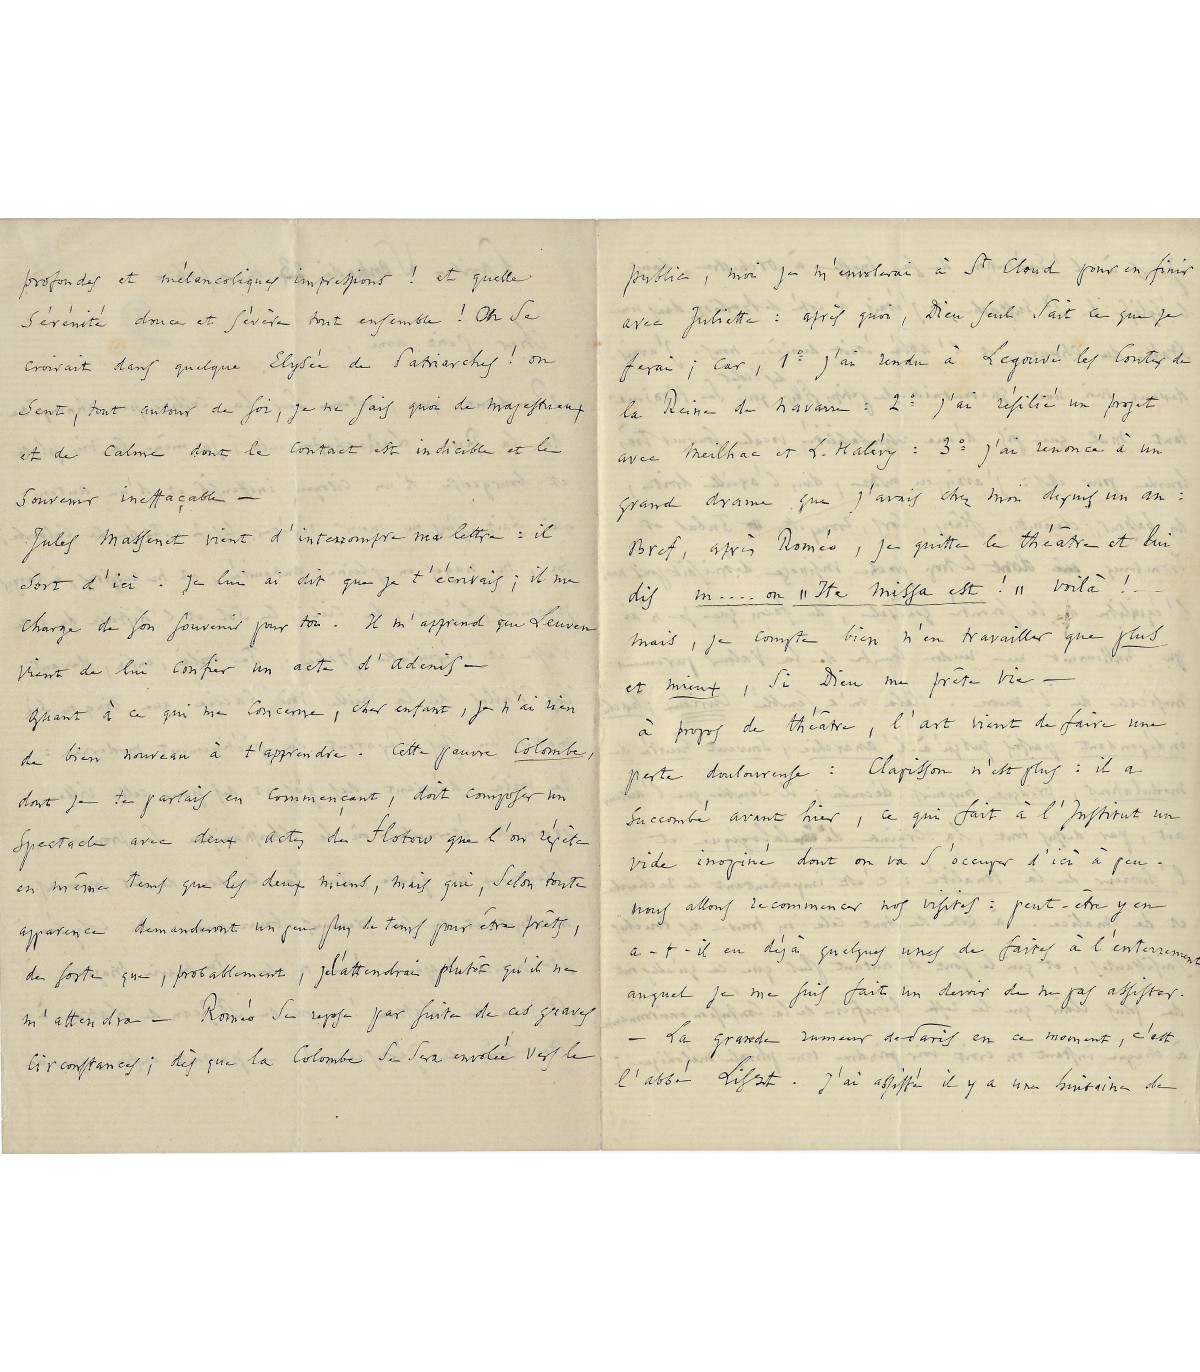 profondes et mélancoliques impressions ! et quelle
Sérénité douce et sévère tout ensemble ! On Se
croirait dans quelque Elysée de Patriarches ! on
Sent, tout autour de soi, je ne sais quoi de majestueux
et de calme dont le contact est indicible et le
Souvenir ineffaçable —
Jules Massenet vient d'interrompre ma lettre : il
Sort d'ici . Je lui ai dit que je t'écrivais ; il me
charge de son souvenir pour toi . Il m'apprend que Leuven
vient de lui confier un acte d'Adenis —
Quant à ce qui me Concerne, cher enfant, je n'ai rien
de bien nouveau à t'apprendre . Cette pauvre Colombe,
dont je te parlais en Commençant, doit composer un
Spectacle avec deux actes de Flotow que l'on répète
en même tems que les deux miens, mais qui, Selon toute
apparence demanderont un peu plus de tems pour être prêts,
de sorte que, probablement, je l'attendrai plutôt qu'il ne
m'attendra — Roméo Se repose par suite de ces graves
Circonstances ; dès que la Colombe Se Sera envolée vers le
public, moi je m'envolerai à St Cloud pour en finir
avec Juliette : après quoi, Dieu Seul Sait ce que je
ferai ; Car, 1º j'ai rendu à Legouvé les Contes de
la Reine de Navarre : 2º j'ai résilié un projet
avec Meilhac et L. Halévy : 3º j'ai renoncé à un
grand drame que j'avais chez moi depuis un an :
Bref, après Roméo, je quitte le théâtre et lui
dis m..... ou "Ite missa est !" voilà ! —
mais, je compte bien n'en travailler que plus
et mieux, Si Dieu me prête vie —
à propos de théâtre, l'art vient de faire une
perte douloureuse : Clapisson n'est plus : il a
Succombé avant hier, ce qui fait à l'Institut un
vide inopiné dont on va S'occuper d'ici à peu -
nous allons recommencer nos visites : peut-être y en
a-t-il eu déjà quelques unes de faites à l'enterrement
auquel je me suis fait un devoir de ne pas assister.
— La grande rumeur de Paris en ce moment, c'est
l'abbé Liszt . J'ai assisté il y a une huitaine de